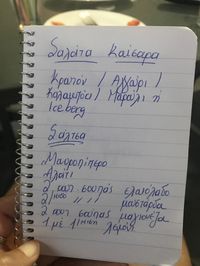 Σαλάτα Καίσαρα
Κρατόν / Αγγούρι /
Καλαμπόκι / Μαρούλι ή
Iceberg
Σάλτσα
Μαυροπίπερο
Αλάτι
2 κουτ σουπας ελαιόλαδο
2 " " / μουστάρδα
2 κουτ σούπας μαγιονέζα
1 με 1 λεμόνι